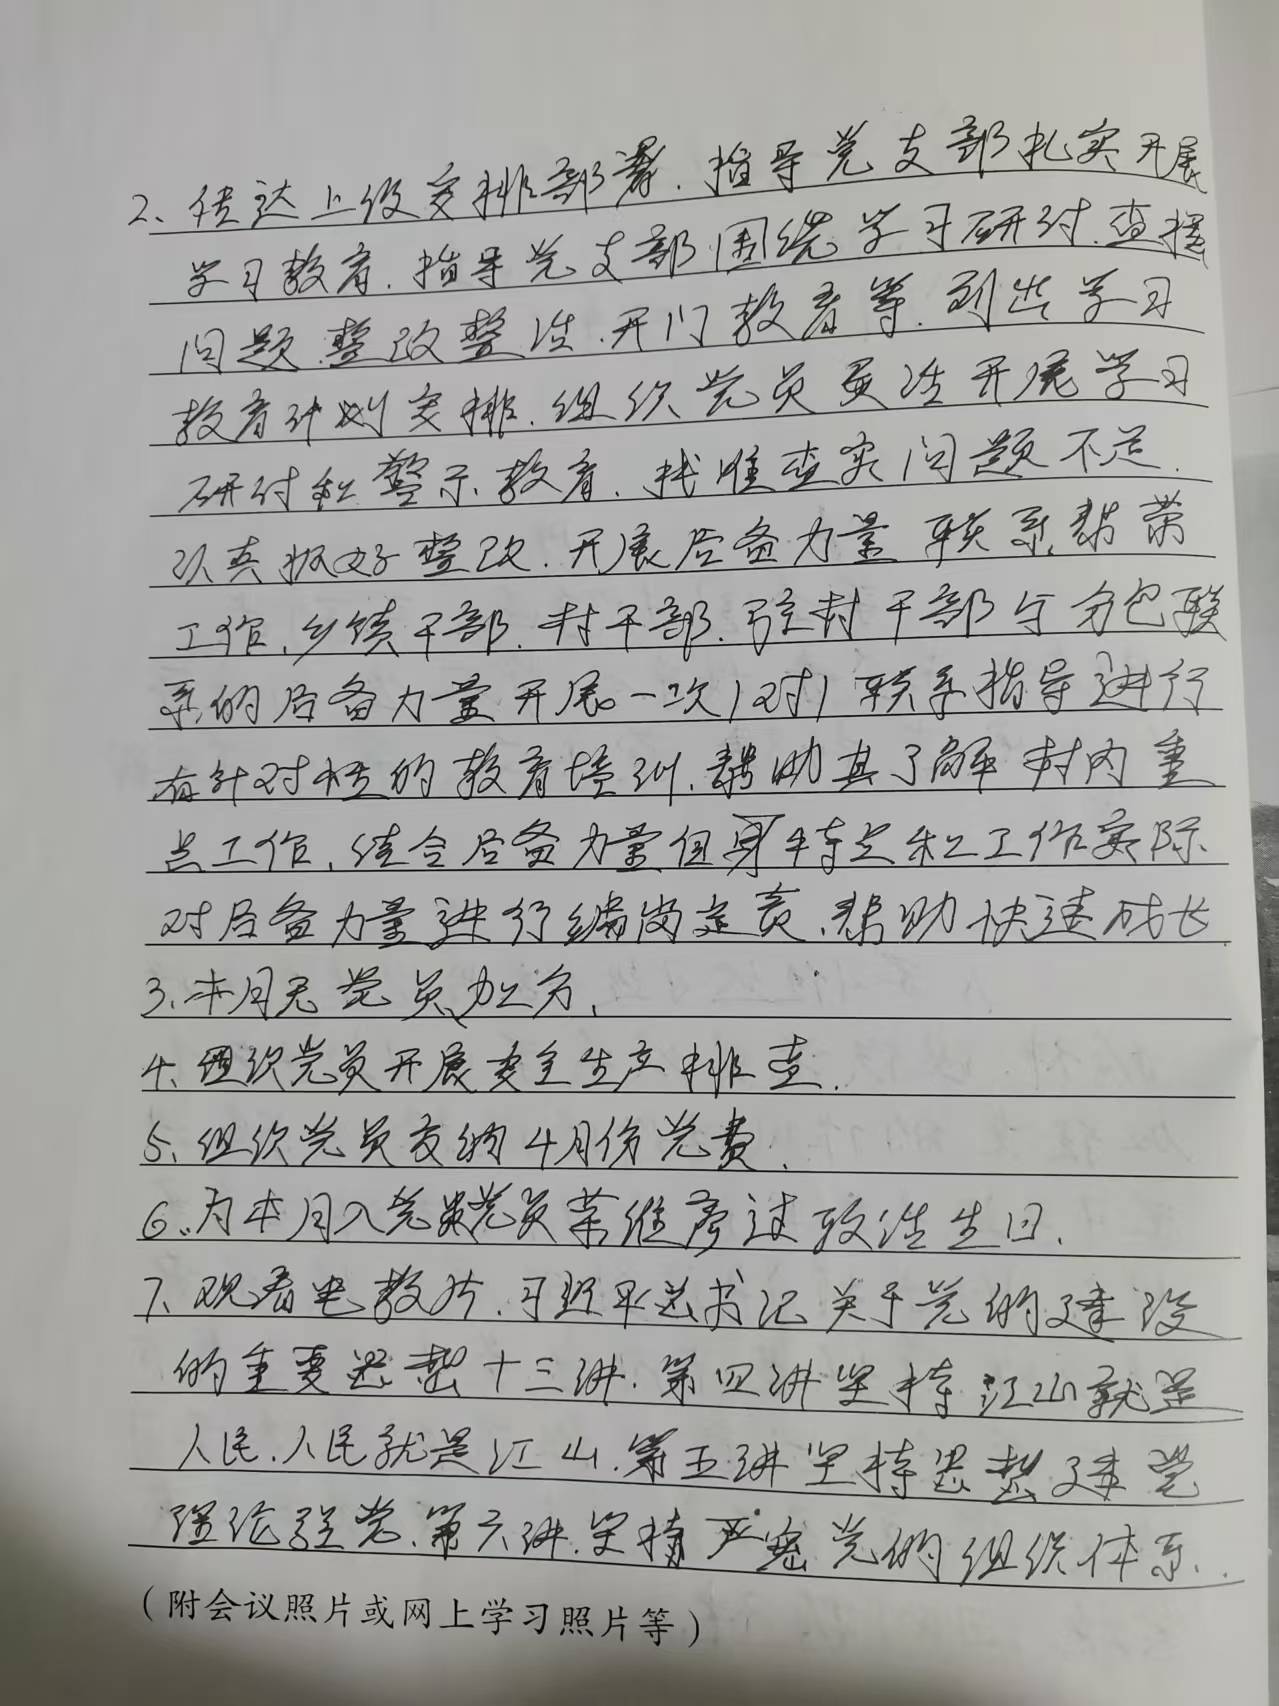 2、传达上级安排部署.指导党支部扎实开展
学习教育.指导党支部围绕学习研讨.查摆
问题.整改整治.开门教育等.列出学习
教育计划安排.组织党员灵活开展学习
研讨和警示教育.找准查实问题不足.
认真抓好整改.开展后备力量联系帮带
工作,乡镇干部.村干部.驻村干部与分包联
系的后备力量开展一次1对1联系指导进行
有针对性的教育培训.帮助其了解村内重
点工作,结合后备力量自身特点和工作实际
对后备力量进行编岗定责.帮助快速成长.
3.本月无党员加分、
4、组织党员开展安全生产排查.
5、组织党员交纳4月份党费.
6、为本月入党党员荣维彦过政治生日.
7、观看电教片.习近平总书记关于党的建设
的重要思想十三讲.第四讲坚持江山就是
人民.人民就是江山.第五讲坚持思想建党
理论强党.第六讲.坚持严密党的组织体系.
(附会议照片或网上学习照片等)